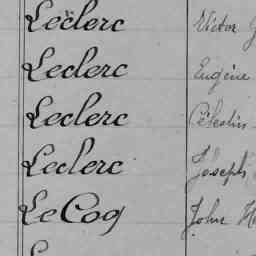 Leclerc Victor
Leclerc Eugène
Leclerc Célestin
Leclerc Joseph
Le Coq John